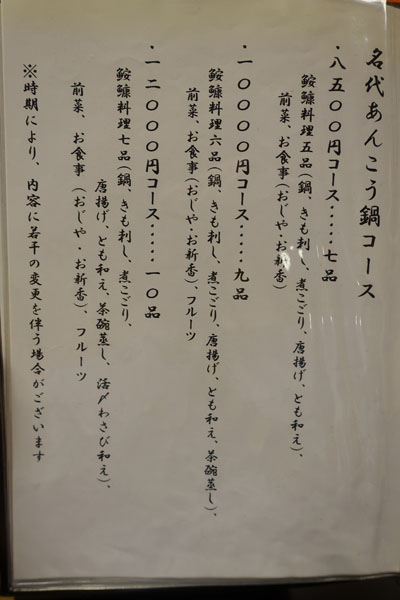 名代あんこう鍋コース
・八五〇〇円コース・・・・・七品
鮟鱇料理五品(鍋、きも刺し、煮こごり、唐揚げ、とも和え)、
前菜、お食事(おじや・お新香)
・一〇〇〇〇円コース・・・・・九品
鮟鱇料理六品(鍋、きも刺し、煮こごり、唐揚げ、とも和え、茶碗蒸し)、
前菜、お食事(おじや・お新香)、フルーツ
・一二〇〇〇円コース・・・・・一〇品
鮟鱇料理七品(鍋、きも刺し、煮こごり、
唐揚げ、とも和え、茶碗蒸し、活〆わさび和え)、
前菜、お食事(おじや・お新香)、フルーツ
※時期により、内容に若干の変更を伴う場合がございます